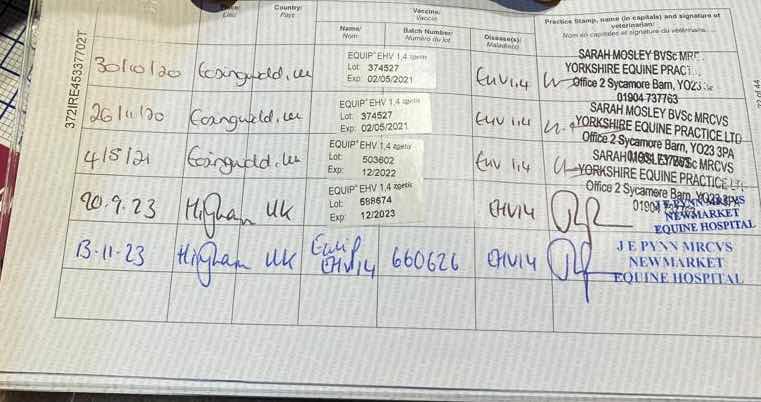 Place/ Country/ Vaccine/
Lieu Pays Vaccin
Practice Stamp, name (in capitals) and signature of
veterinarian/
Nom en capitales et signature du vétérinaire
Name/ Batch Number/ Disease(s)/
Nom Numéro du lot Maladie(s)
372IRE45337702T
30/10/20 Easingwold, UK EQUIP EHV 1,4 zoetis
Lot: 374527
Exp: 02/05/2021
EHV 1,4
SARAH MOSLEY BVSc MRC
YORKSHIRE EQUINE PRACT
Office 2 Sycamore Barn, YO23
01904 737763
26/11/20 Easingwold, UK EQUIP EHV 1,4 zoetis
Lot: 374527
Exp: 02/05/2021
EHV 1,4
SARAH MOSLEY BVSc MRCVS
YORKSHIRE EQUINE PRACTICE LTD
Office 2 Sycamore Barn, YO23 3PA
4/5/21 Easingwold, UK EQUIP EHV 1,4 zoetis
Lot: 503602
Exp: 12/2022
EHV 1,4
SARAH MOSLEY BVSc MRCVS
YORKSHIRE EQUINE PRACTICE LTD
Office 2 Sycamore Barn, YO23 3PA
20.9.23 Higham UK EQUIP EHV 1,4 zoetis
Lot: 688674
Exp: 12/2023
EHV14
J E PYNN MRCVS
NEWMARKET
EQUINE HOSPITAL
13-11-23 Higham UK Equip
EHV14 660626 EHV14
J E PYNN MRCVS
NEWMARKET
EQUINE HOSPITAL